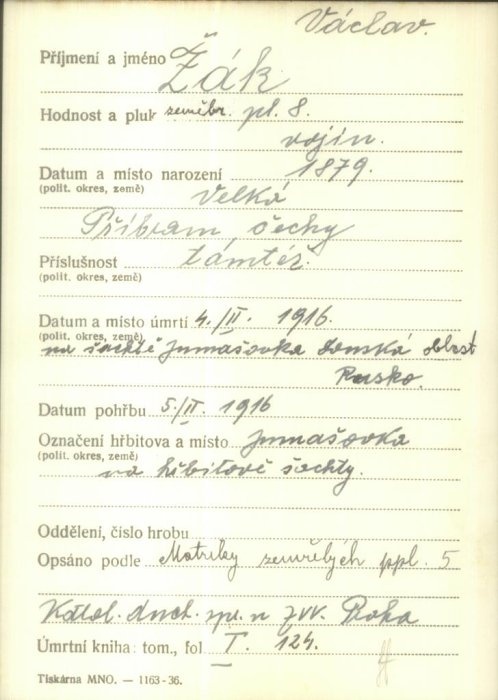 Václav.
Příjmení a jméno Žák
Hodnost a pluk zeměbr. pl. 8.
vojín.
Datum a místo narození 1879.
(polit. okres, země) Velká
Příbram, čechy
Příslušnost támtéž.
(polit. okres, země)
Datum a místo úmrtí 4./II. 1916.
(polit. okres, země)
na šachtě Jumašovka donská oblast
Rusko.
Datum pohřbu 5./II. 1916
Označení hřbitova a místo Jumašovka
(polit. okres, země)
na hřbitově šachty.
Oddělení, číslo hrobu
Opsáno podle Matriky zemřelých ppl. 5
Katol. duch. spr. n ZVV. Praha
Úmrtní kniha: tom., fol I. 124.
Tiskárna MNO. — 1163-36.